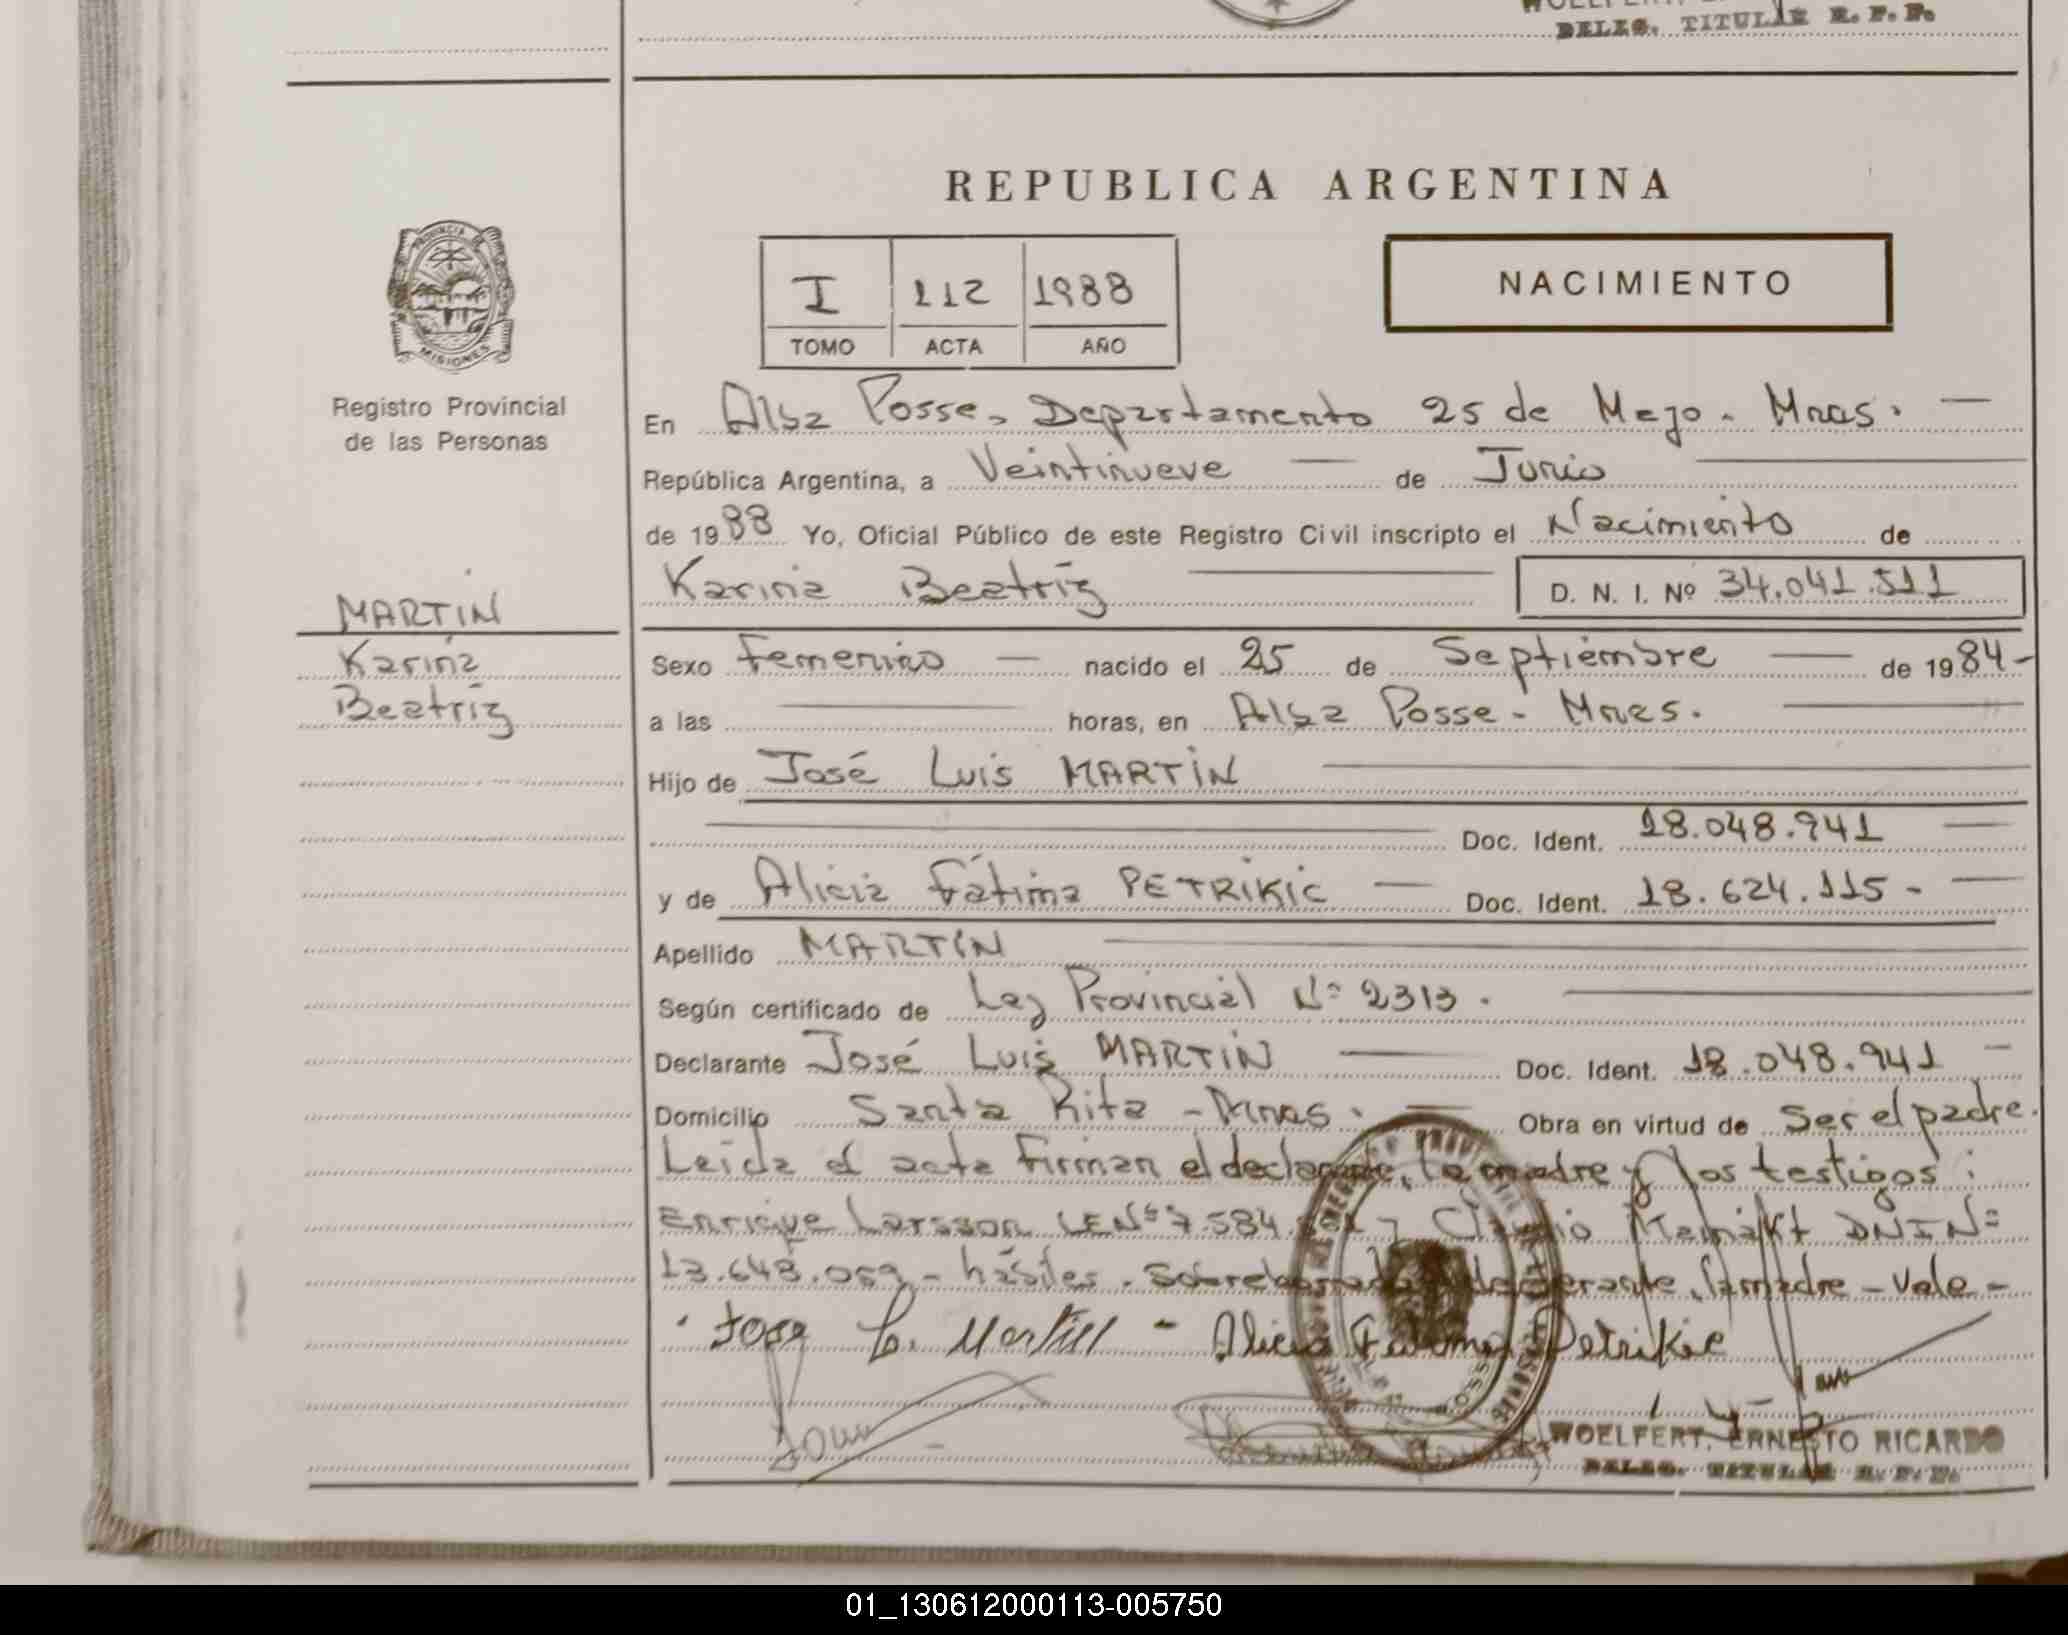 WOELFERT,
DELEG. TITULAR R. P. P.
REPUBLICA ARGENTINA
PROVINCIA DE
MISIONES
Registro Provincial
de las Personas
I 112 1988
TOMO ACTA AÑO
NACIMIENTO
En Alba Posse, Departamento 25 de Mayo - Mnes. —
República Argentina, a Veintinueve — de Junio
de 1988 Yo, Oficial Público de este Registro Civil inscripto el Nacimiento de
Karina Beatríz — D. N. I. Nº 34.041.511
MARTIN
Karina
Beatríz
Sexo Femenino — nacido el 25 de Septiembre — de 1984-
a las — horas, en Alba Posse - Mnes.
Hijo de José Luis MARTIN
Doc. Ident. 18.048.941
y de Alicia Fátima PETRIKIC — Doc. Ident. 18.624.115 -
Apellido MARTIN
Según certificado de Ley Provincial Nº 2313.
Declarante José Luis MARTIN — Doc. Ident. 18.048.941 —
Domicilio Santa Rita - Mnes. — Obra en virtud de Ser el padre.
Leída el acta firman el declarante, la madre y los testigos:
Enrique Larsson LE Nº 7.584. - Claudio DNI Nº
13.648.059 - hábiles. Sobreborrado declarante, la madre - Vale -
Jose L. Martin - Alicia Fatima Petrikic
WOELFERT, ERNESTO RICARDO
DELEG. TITULAR R. P. P.
01_130612000113-005750